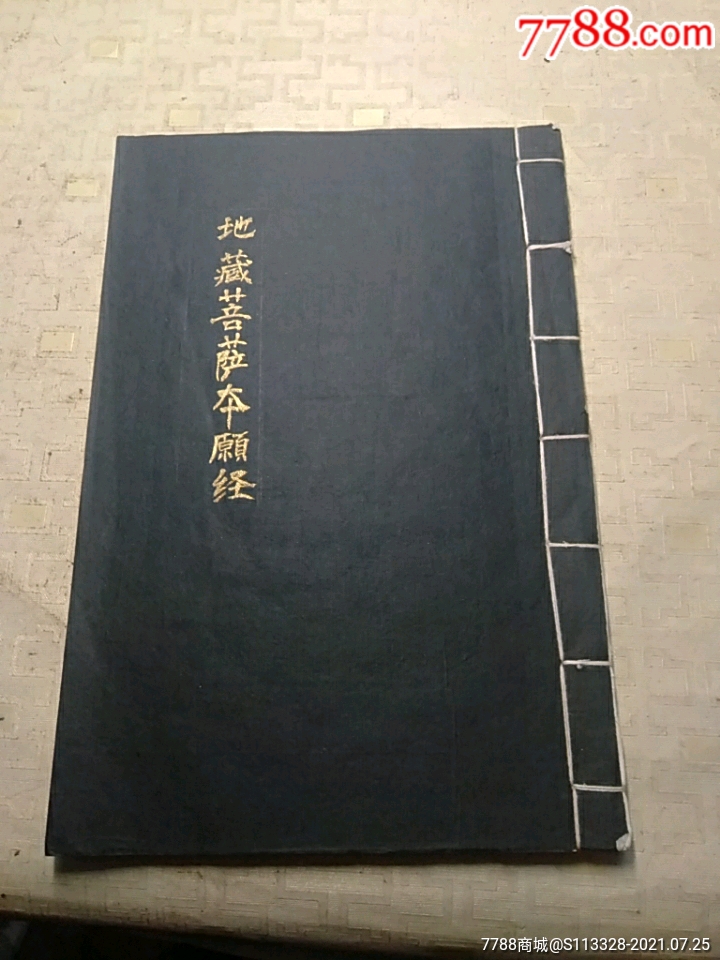 7788.com
地藏菩萨本願经
7788商城@S113328-2021.07.25